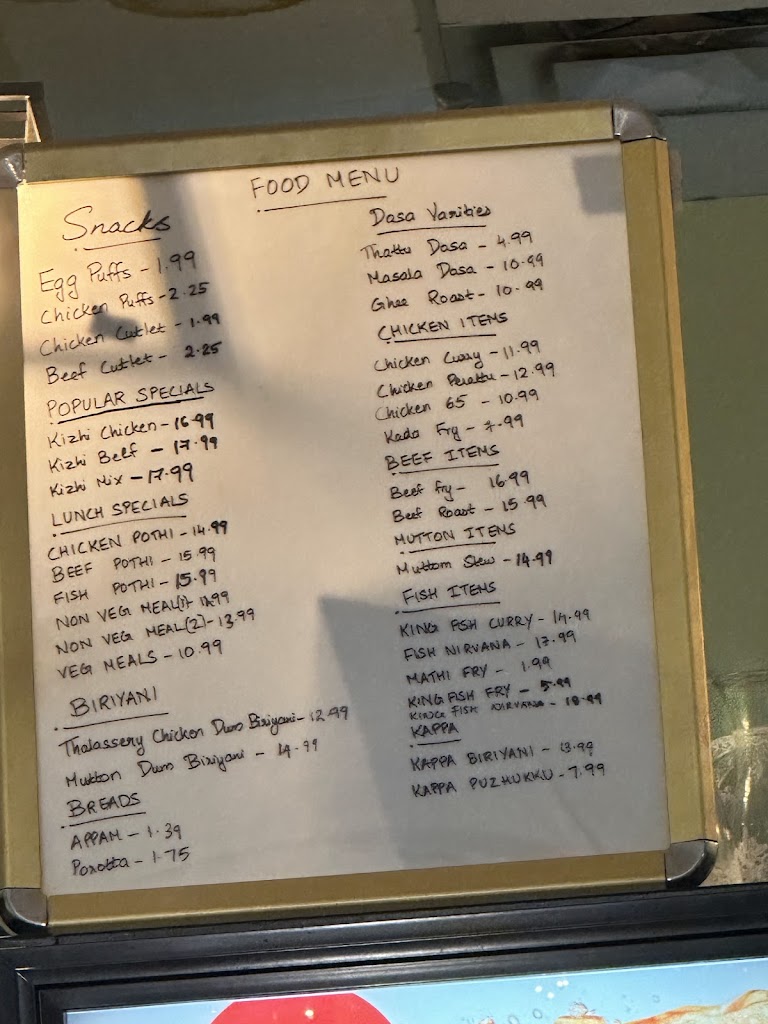 FOOD MENU
Snacks
Egg Puffs - 1.99
Chicken Puffs - 2.25
Chicken Cutlet - 1.99
Beef Cutlet - 2.25
POPULAR SPECIALS
Kizhi Chicken - 16.99
Kizhi Beef - 17.99
Kizhi Mix - 17.99
LUNCH SPECIALS
CHICKEN POTHI - 14.99
BEEF POTHI - 15.99
FISH POTHI - 15.99
NON VEG MEAL(1)
NON VEG MEAL(2) - 13.99
VEG MEALS - 10.99
BIRIYANI
Thalassery Chicken Dum Biriyani - 12.99
Mutton Dum Biriyani - 14.99
BREADS
APPAM - 1.39
Porotta - 1.75
Dasa Varities
Thattu Dasa - 4.99
Masala Dasa - 10.99
Ghee Roast - 10.99
CHICKEN ITEMS
Chicken Curry - 11.99
Chicken Perattu - 12.99
Chicken 65 - 10.99
Kada Fry - 7.99
BEEF ITEMS
Beef fry - 16.99
Beef Roast - 15.99
MUTTON ITEMS
Muttom Stew - 14.99
FISH ITEMS
KING FISH CURRY - 14.99
FISH NIRVANA - 17.99
MATHI FRY - 1.99
KING FISH FRY - 5.99
KING FISH NIRVANA - 18.99
KAPPA
KAPPA BIRIYANI - 13.99
KAPPA PUZHUKKU - 7.99